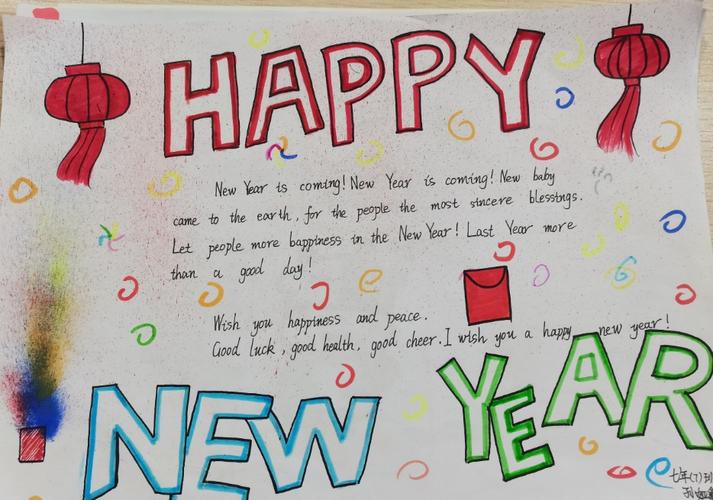 HAPPY
New Year is coming! New Year is coming! New baby
came to the earth, for the people the most sincere blessings.
Let people more bappiness in the New Year! Last Year more
than a good day!
Wish you happiness and peace.
Good luck, good health, good cheer. I wish you a happy new year!
NEW YEAR
七年(7)班